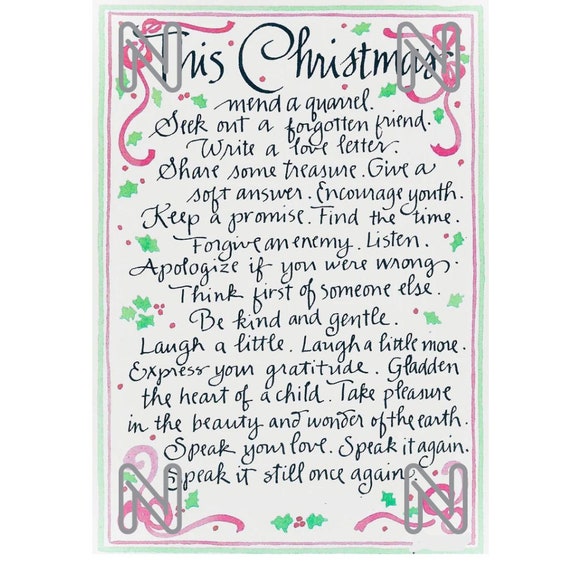 This Christmas
mend a quarrel.
Seek out a forgotten friend.
Write a love letter.
Share some treasure. Give a
soft answer. Encourage youth.
Keep a promise. Find the time.
Forgive an enemy. Listen.
Apologize if you were wrong.
Think first of someone else.
Be kind and gentle.
Laugh a little. Laugh a little more.
Express your gratitude. Gladden
the heart of a child. Take pleasure
in the beauty and wonder of the earth.
Speak your love. Speak it again.
Speak it still once again.